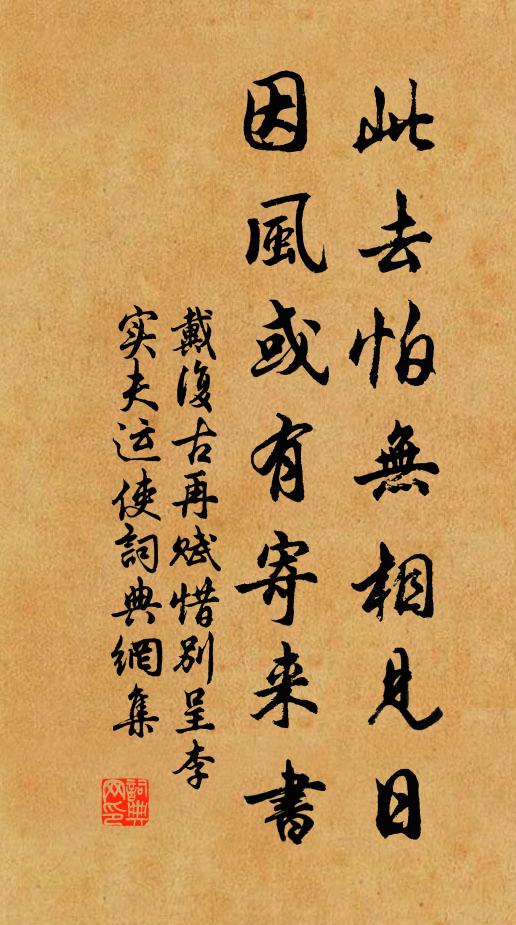 此去怕無相見日
因風或有寄来書
戴復古再赋惜别呈李
实夫运使詞典網集
詞典網印